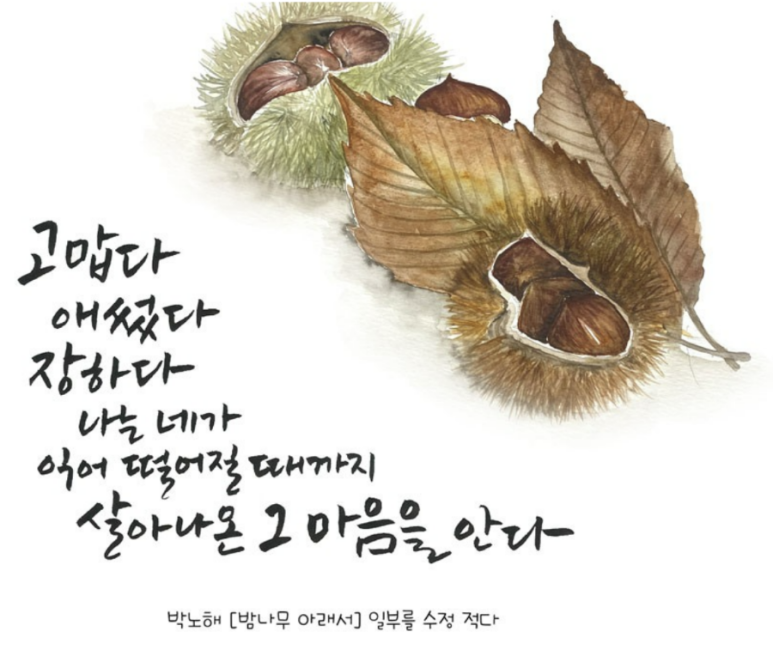 고맙다
애썼다
장하다
나는 네가
익어 떨어질 때까지
살아나온 그 마음을 안다
박노해 [밤나무 아래서] 일부를 수정 적다